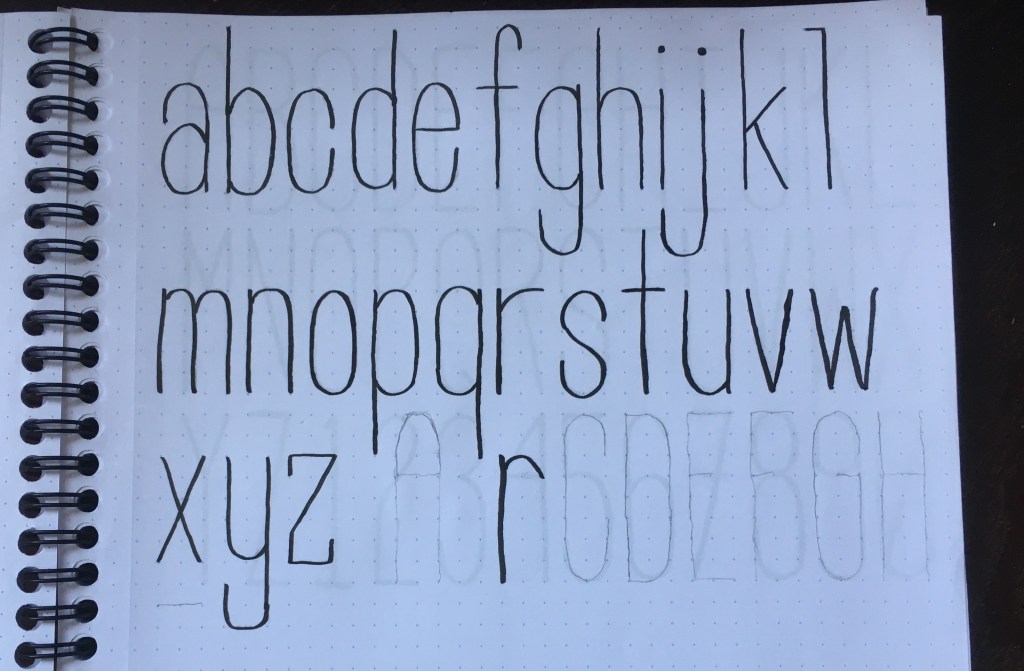 abcdefghijkl
mnopqrstuvw
xyz r